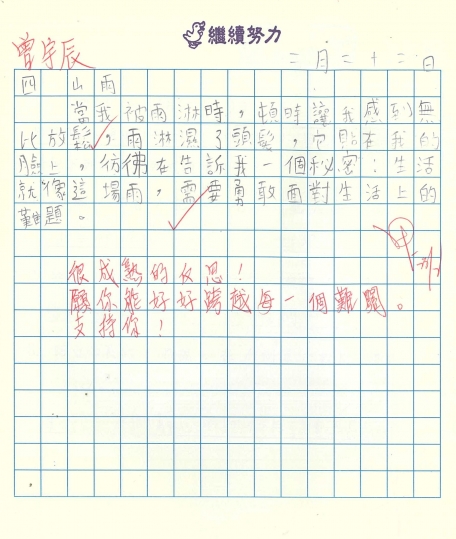 繼續努力
曾宇辰
二月二十二日
四 山雨
當我被雨淋時，頓時讓我感到無
比放鬆，雨淋濕了頭髮，它貼在我的
臉上，彷彿在告訴我一個秘密：生活
就像這場雨，需要勇敢面對生活上的
難題。
很成熟的反思！
願你能好好跨越每一個難關。
支持你！